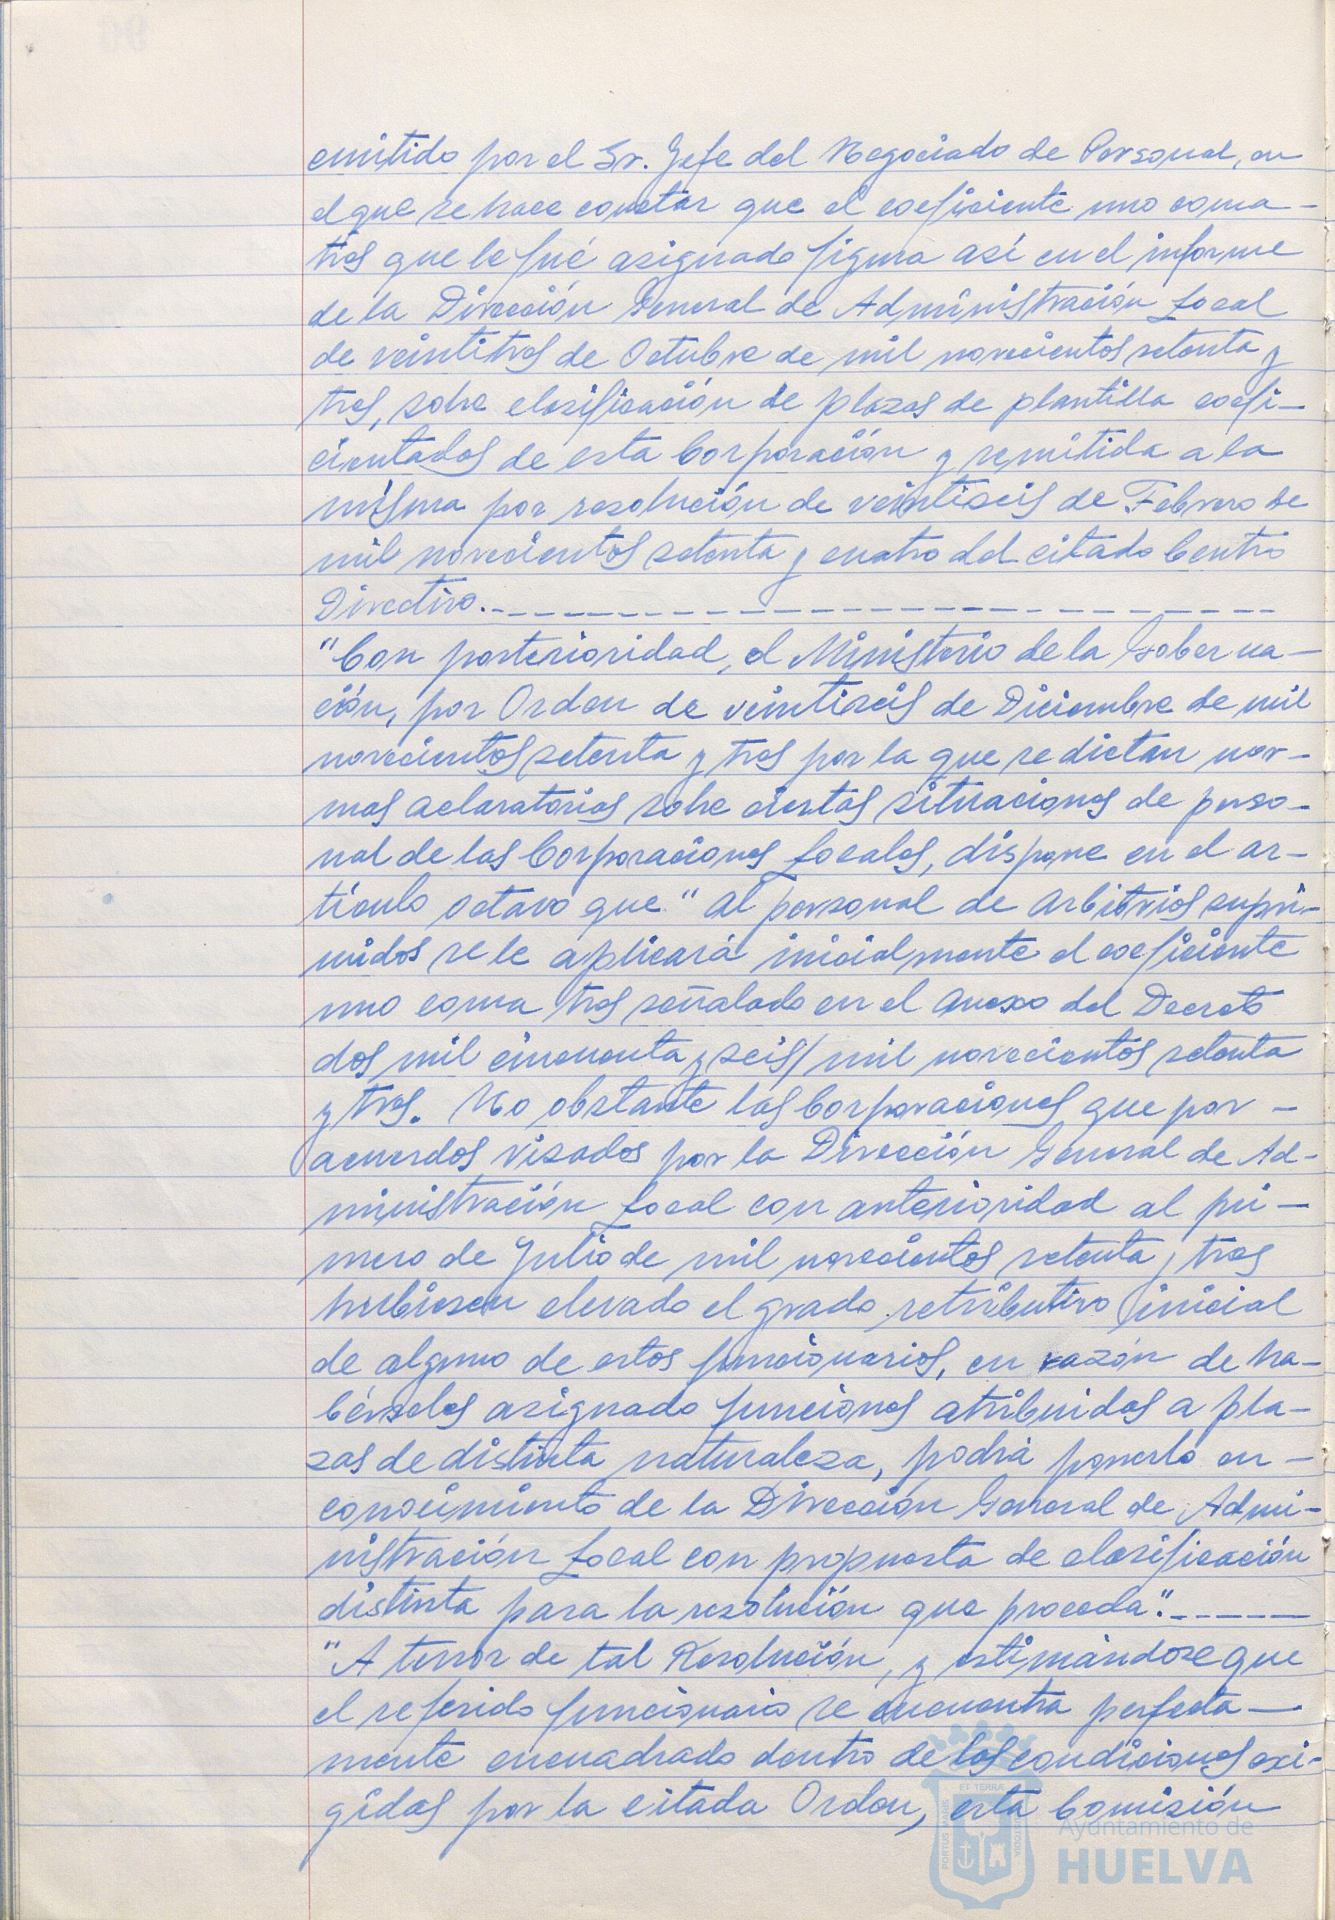 emitido por el Sr. Jefe del Negociado de Personal, en
el que se hace constar que el coeficiente uno coma-
tres que le fué asignado figura así en el informe
de la Dirección General de Administración Local
de veintitres de Octubre de mil novecientos setenta y
tres, sobre clasificación de plazas de plantilla coefi-
cientados de esta Corporación y remitida a la
misma por resolución de veintiseis de Febrero de
mil novecientos setenta y cuatro del citado Centro
Directivo.
"Con posterioridad, el Ministerio de la Goberna-
ción, por Orden de veintiseis de Diciembre de mil
novecientos setenta y tres por la que se dictan nor-
mas aclaratorias sobre ciertas situaciones de perso-
nal de las Corporaciones Locales, dispone en el ar-
tículo octavo que "al personal de arbitrios supri-
midos se le aplicará inicialmente el coeficiente
uno coma tres señalado en el anexo del Decreto
dos mil cincuenta y seis/mil novecientos setenta
y tres. No obstante las Corporaciones que por -
acuerdos visados por la Dirección General de Ad-
ministración Local con anterioridad al pri-
mero de Julio de mil novecientos setenta y tres
hubiesen elevado el grado retributivo inicial
de alguno de estos funcionarios, en razón de ha-
bérseles asignado funciones atribuidas a pla-
zas de distinta naturaleza, podrá ponerlo en -
conocimiento de la Dirección General de Admi-
nistración Local con propuesta de clasificación
distinta para la resolución que proceda".
"A tenor de tal Resolución, y estimándose que
el referido funcionario se encuentra perfecta-
mente encuadrado dentro de las condiciones exi-
gidas por la citada Orden, esta Comisión
Ayuntamiento de
HUELVA